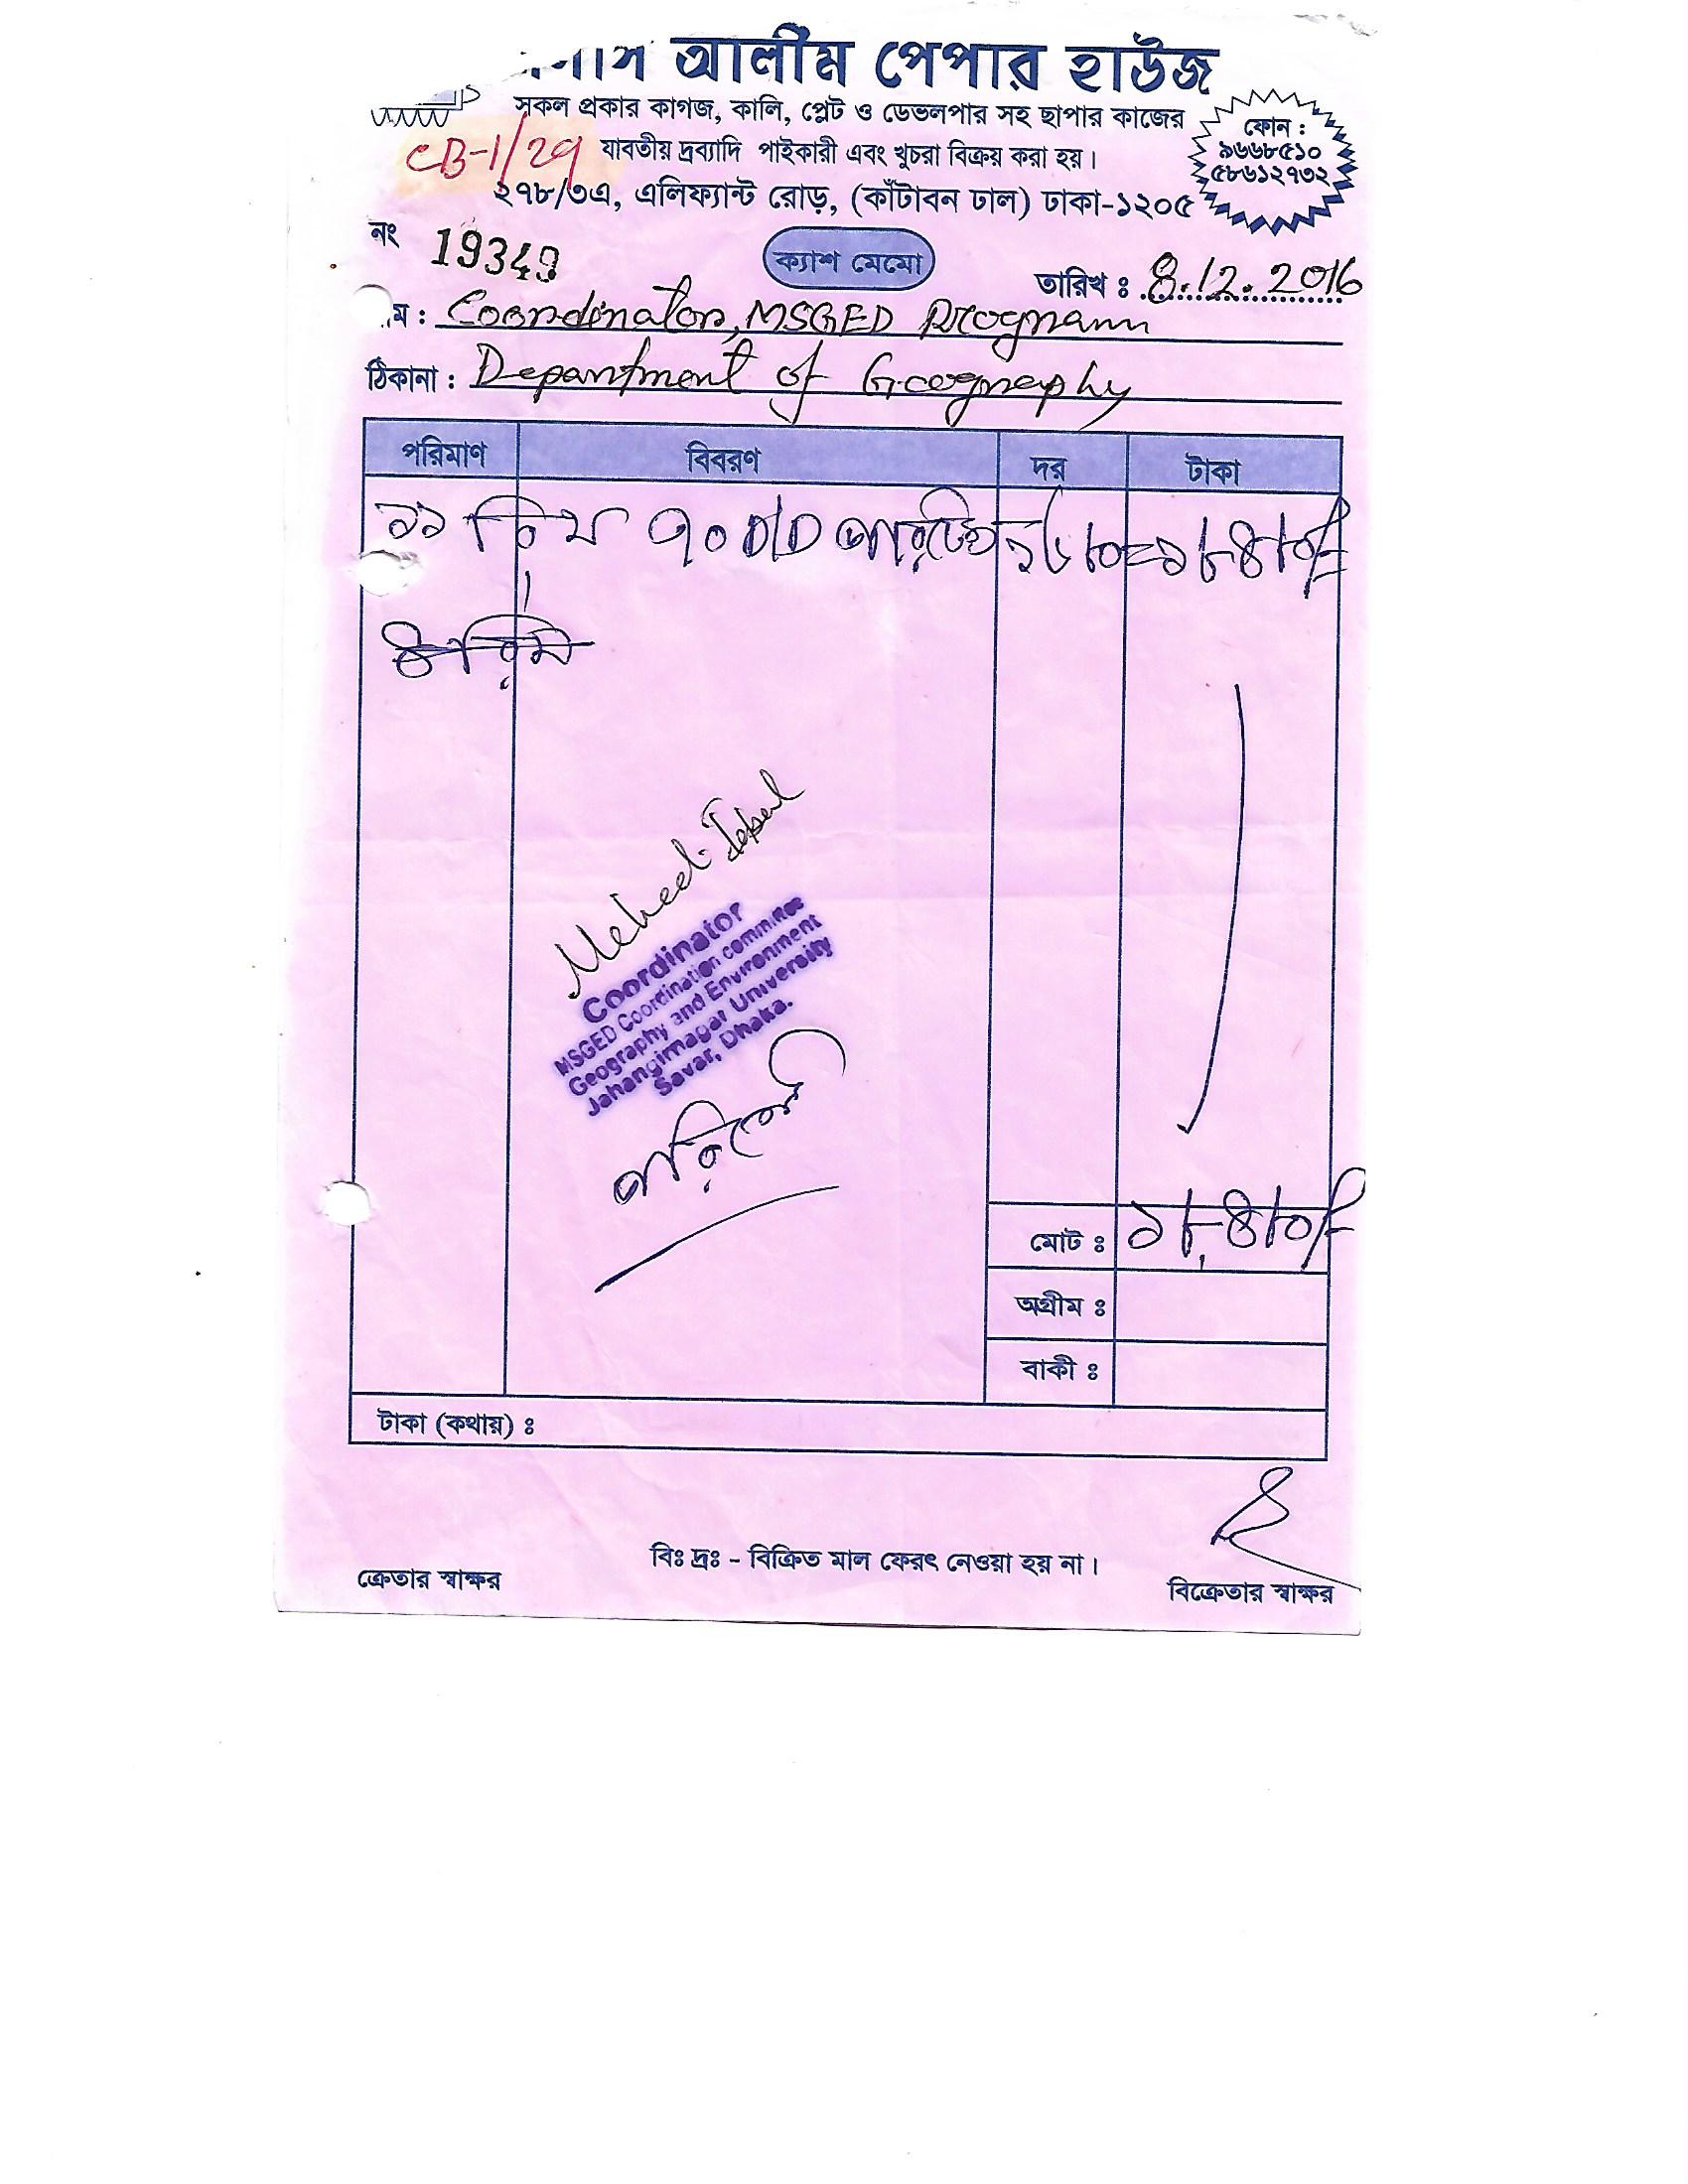 আলীম পেপার হাউজ
সকল প্রকার কাগজ, কালি, প্লেট ও ডেভলপার সহ ছাপার কাজের
যাবতীয় দ্রব্যাদি পাইকারী এবং খুচরা বিক্রয় করা হয়।
CB-1/29
২৭৮/৩এ, এলিফ্যান্ট রোড়, (কাঁটাবন ঢাল) ঢাকা-১২০৫
ফোন :
৯৬৬৮৫১০
৫৮৬১২৭৩২
নং 19349
ক্যাশ মেমো
তারিখ ঃ 8.12.2016
ম : Coordinator, MSGED Program
ঠিকানা : Department of Geography
পরিমাণ বিবরণ দর টাকা
১১ রিম ৭০ D/D ১৬৮০= ১৮৪৮০/=
Coordinator
MSGED Coordination committee
Geography and Environment
Jahangirnagar University
Savar, Dhaka.
মোট ঃ ১৮,৪৮০/=
অগ্রীম ঃ
বাকী ঃ
টাকা (কথায়) ঃ
বিঃ দ্রঃ - বিক্রিত মাল ফেরৎ নেওয়া হয় না।
ক্রেতার স্বাক্ষর
বিক্রেতার স্বাক্ষর